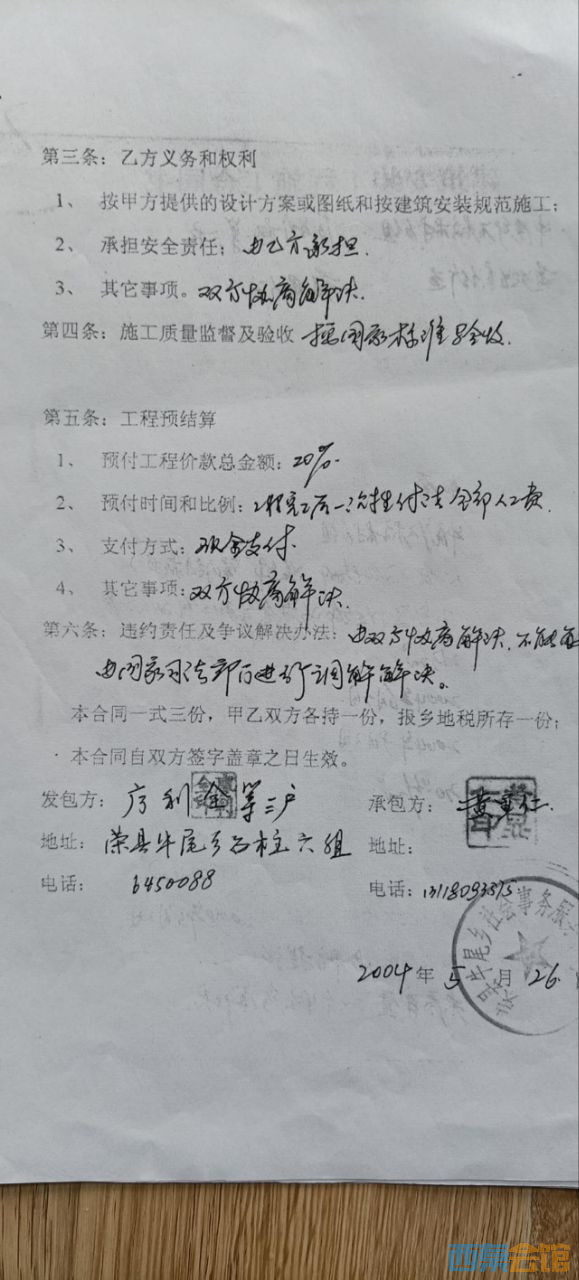 第三条：乙方义务和权利
1、 按甲方提供的设计方案或图纸和按建筑安装规范施工；
2、 承担安全责任；由乙方承担.
3、 其它事项。双方协商解决.
第四条：施工质量监督及验收 按国家标准验收.
第五条：工程预结算
1、 预付工程价款总金额：20%.
2、 预付时间和比例：工程完工后一次性付清全部人工费.
3、 支付方式：现金支付.
4、 其它事项：双方协商解决.
第六条：违约责任及争议解决办法：由双方协商解决.不能
由国家司法部门进行调解解决。
本合同一式三份，甲乙双方各持一份，报乡地税所存一份；
本合同自双方签字盖章之日生效。
发包方： 利金等三户
承包方：
地址： 荣县牛尾乡石柱六组 地址：
电话： 6450088
电话：
牛尾乡社会事务服
2004年5月26
西祠会馆